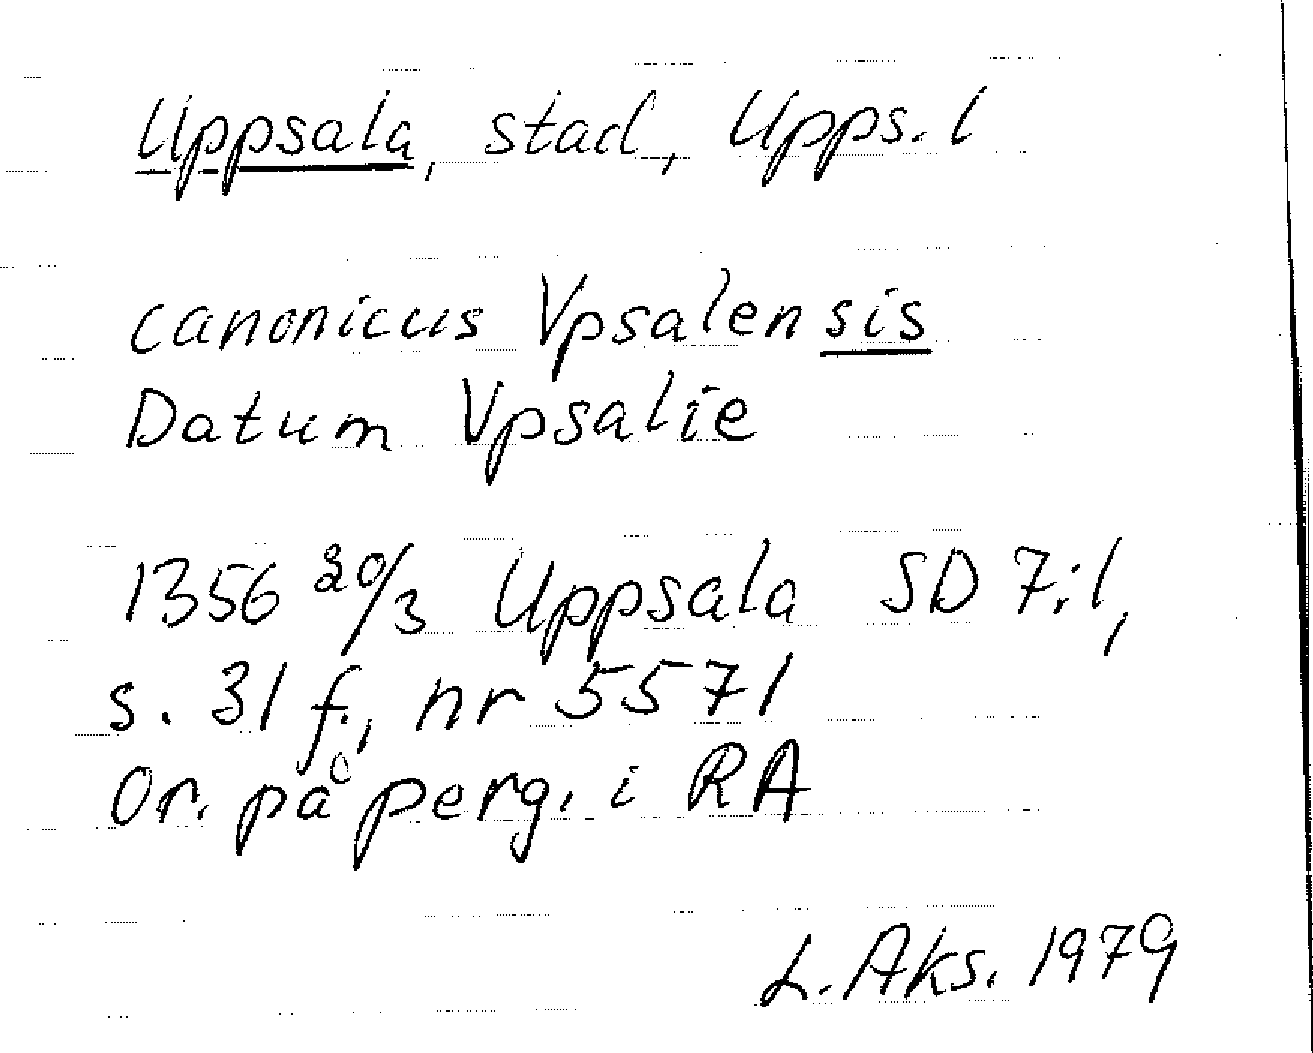 Uppsala, stad, Upps. l
canonicus Vpsalensis
Datum Vpsalie
1356 20/3 Uppsala SD 7:1,
s. 31 f., nr 5571
Or. på perg. i RA
L. Aks. 1979